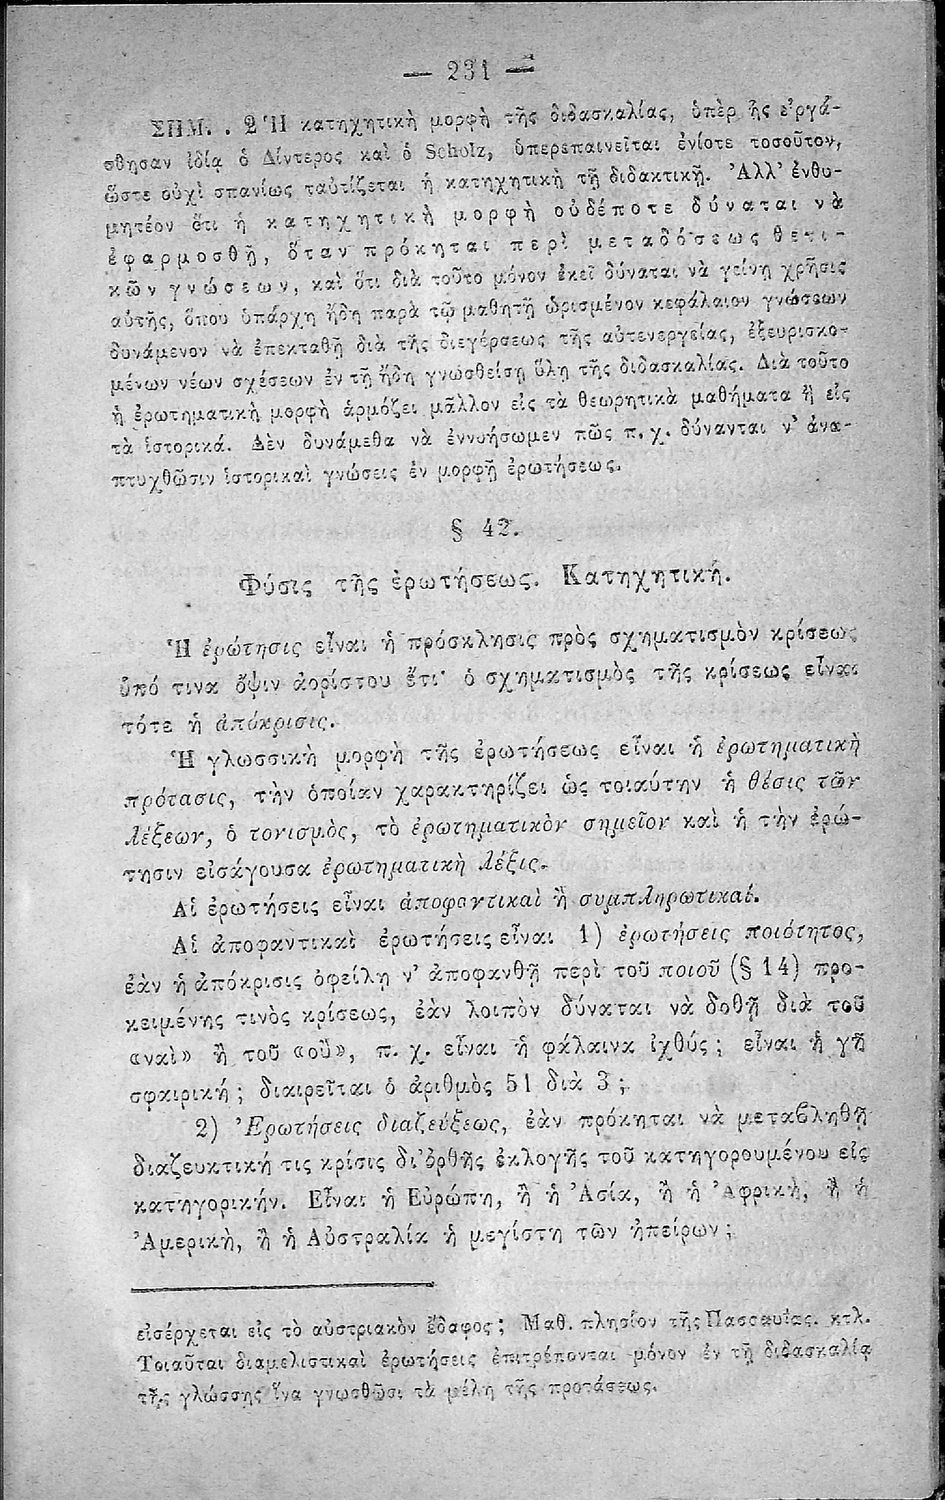 — 231 —
ΣΗΜ. . 2 Ἡ κατηχητικὴ μορφὴ τῆς διδασκαλίας, ὑπὲρ ἧς εἰργά-
σθησαν ἰδίᾳ ὁ Δίντερος καὶ ὁ Scholz, ὑπερεπαινεῖται ἐνίοτε τοσοῦτον,
ὥστε οὐχὶ σπανίως ταὐτίζεται ἡ κατηχητικὴ τῇ διδακτικῇ. Ἀλλ' ἐνθυ-
μητέον ὅτι ἡ κατηχητικὴ μορφὴ οὐδέποτε δύναται νὰ
ἐφαρμοσθῇ, ὅταν πρόκηται περὶ μεταδόσεως θετι-
κῶν γνώσεων, καὶ ὅτι διὰ τοῦτο μόνον ἐκεῖ δύναται νὰ γείνῃ χρῆσις
αὐτῆς, ὅπου ὑπάρχῃ ἤδη παρὰ τῷ μαθητῇ ὡρισμένον κεφάλαιον γνώσεων
δυνάμενον νὰ ἐπεκταθῇ διὰ τῆς διεγέρσεως τῆς αὐτενεργείας, ἐξευρισκο-
μένων νέων σχέσεων ἐν τῇ ἤδη γνωσθείσῃ ὕλῃ τῆς διδασκαλίας. Διὰ τοῦτο
ἡ ἐρωτηματικὴ μορφὴ ἁρμόζει μᾶλλον εἰς τὰ θεωρητικὰ μαθήματα ἢ εἰς
τὰ ἱστορικά. Δὲν δυνάμεθα νὰ ἐννοήσωμεν πῶς π. χ. δύνανται ν' ἀνα-
πτυχθῶσιν ἱστορικαὶ γνώσεις ἐν μορφῇ ἐρωτήσεως.
§ 42.
Φύσις τῆς ἐρωτήσεως. Κατηχητική.
Ἡ ἐρώτησις εἶναι ἡ πρόσκλησις πρὸς σχηματισμὸν κρίσεως
ὑπό τινα ὄψιν ἀορίστου ἔτι· ὁ σχηματισμὸς τῆς κρίσεως εἶναι
τότε ἡ ἀπόκρισις.
Ἡ γλωσσικὴ μορφὴ τῆς ἐρωτήσεως εἶναι ἡ ἐρωτηματικὴ
πρότασις, τὴν ὁποίαν χαρακτηρίζει ὡς τοιαύτην ἡ θέσις τῶν
λέξεων, ὁ τονισμὸς, τὸ ἐρωτηματικὸν σημεῖον καὶ ἡ τὴν ἐρώ-
τησιν εἰσάγουσα ἐρωτηματικὴ λέξις.
Αἱ ἐρωτήσεις εἶναι ἀποφαντικαὶ ἢ συμπληρωτικαί.
Αἱ ἀποφαντικαὶ ἐρωτήσεις εἶναι 1) ἐρωτήσεις ποιότητος,
ἐὰν ἡ ἀπόκρισις ὀφείλῃ ν' ἀποφανθῇ περὶ τοῦ ποιοῦ (§ 14) προ-
κειμένης τινὸς κρίσεως, ἐὰν λοιπὸν δύναται νὰ δοθῇ διὰ τοῦ
«ναὶ» ἢ τοῦ «οὒ», π. χ. εἶναι ἡ φάλαινα ἰχθύς; εἶναι ἡ γῆ
σφαιρική; διαιρεῖται ὁ ἀριθμὸς 51 διὰ 3;
2) Ἐρωτήσεις διαζεύξεως, ἐὰν πρόκηται νὰ μεταβληθῇ
διαζευκτική τις κρίσις δι' ὀρθῆς ἐκλογῆς τοῦ κατηγορουμένου εἰς
κατηγορικήν. Εἶναι ἡ Εὐρώπη, ἢ ἡ Ἀσία, ἢ ἡ Ἀφρική, ἢ ἡ
Ἀμερικὴ, ἢ ἡ Αὐστραλία ἡ μεγίστη τῶν ἠπείρων;
εἰσέρχεται εἰς τὸ αὐστριακὸν ἔδαφος; Μαθ. πλησίον τῆς Πασσαυΐας. κτλ.
Τοιαῦται διαμελιστικαὶ ἐρωτήσεις ἐπιτρέπονται μόνον ἐν τῇ διδασκαλίᾳ
τῆς γλώσσης ἵνα γνωσθῶσι τὰ μέλη τῆς προτάσεως.